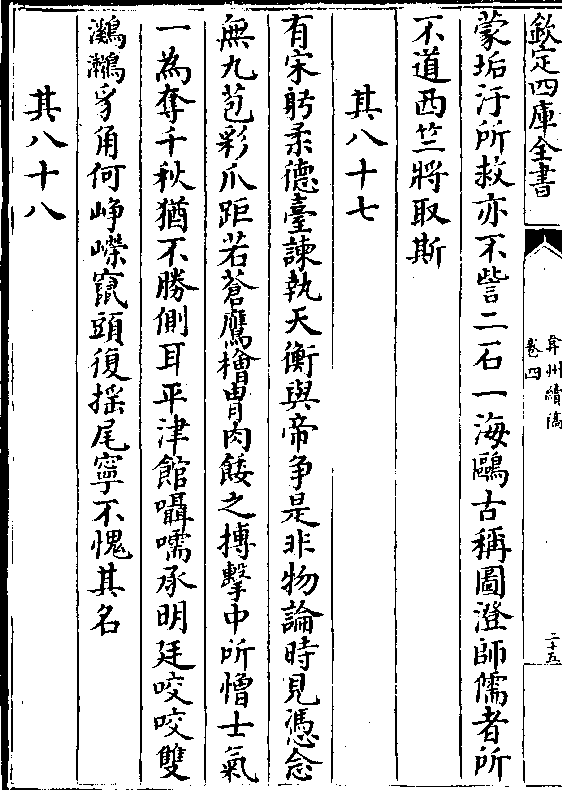 欽定四庫全書
弇州續稿
卷四
二十五
蒙垢汙所救亦不訾二石一海鷗古稱圖澄師儒者所
不道西竺將取斯
其八十七
有宋躬柔德臺諫執天衡與帝争是非物論時見憑念
無九苞彩爪距若蒼鷹檜胄肉餧之搏擊中所憎士氣
一為奪千秋猶不勝側耳平津館囁嚅承明廷咬咬雙
鸂𪆟豸角何崢嶸竄頭復揺尾寧不愧其名
其八十八